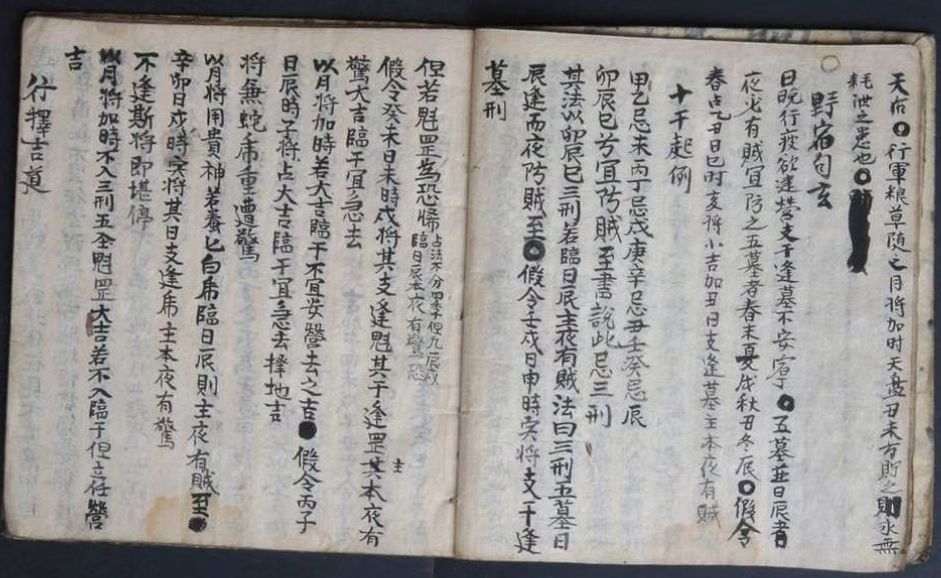 天右〇行軍粮草随之月將加时天盘丑未方貯之則永無
耗泄之患也〇
野宿勾玄
日晚行疲欲逮营支干逢墓不安宿〇五墓並日辰者
夜必有賊宜防之五墓者春未夏戌秋丑冬辰〇假令
春占乙丑日巳时亥將小吉加丑日支逢墓主本夜有賊
十干起例
甲乙忌未丙丁忌戌庚辛忌丑壬癸忌辰
卯辰巳兮宜防賊至書說此忌三刑
其法以卯辰巳三刑若臨日辰主夜有賊法曰三刑五墓日
辰逢而夜防賊至〇假令壬戌日申時寅將支干逢
墓刑
但若魁罡為恐怖占法不分四季但凡辰戌
臨日辰本夜有驚恐
假令癸未日未時戌將其支逢魁其干逢罡主其本夜有
驚大吉臨干宜急去
以月將加時若大吉臨干不宜安營去之吉●假令丙子
日辰時子將占大吉臨干宜急去擇地吉
將無蛇虎重遭驚
以月將用貴神若匕白虎臨日辰則主夜有賊至●
辛卯日戌時寅將其日支逢虎主本夜有驚
不逢斯將即堪停
以月將加時不入三刑五金魁罡大吉若不入臨干但立任營
吉
行擇吉道